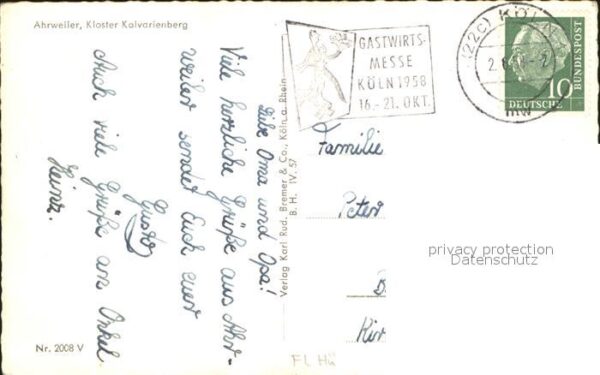 Ahrweiler, Kloster Kalvarienberg
Liebe Oma und Opa!
Viele herzliche Grüße aus Ahr-
weiler sendet Euch euer
Gustav
Auch viele Grüße an Onkel
Heinz.
Nr. 2008 V
Verlag Karl Rud. Bremer & Co., Köln a. Rhein
B. H. IV. 57
GASTWIRTS-
MESSE
KÖLN 1958
16.-21. OKT.
(22c) KÖLN
DEUTSCHE
BUNDESPOST
10
Familie
Peter
Kir
privacy protection
Datenschutz
Fl Hü